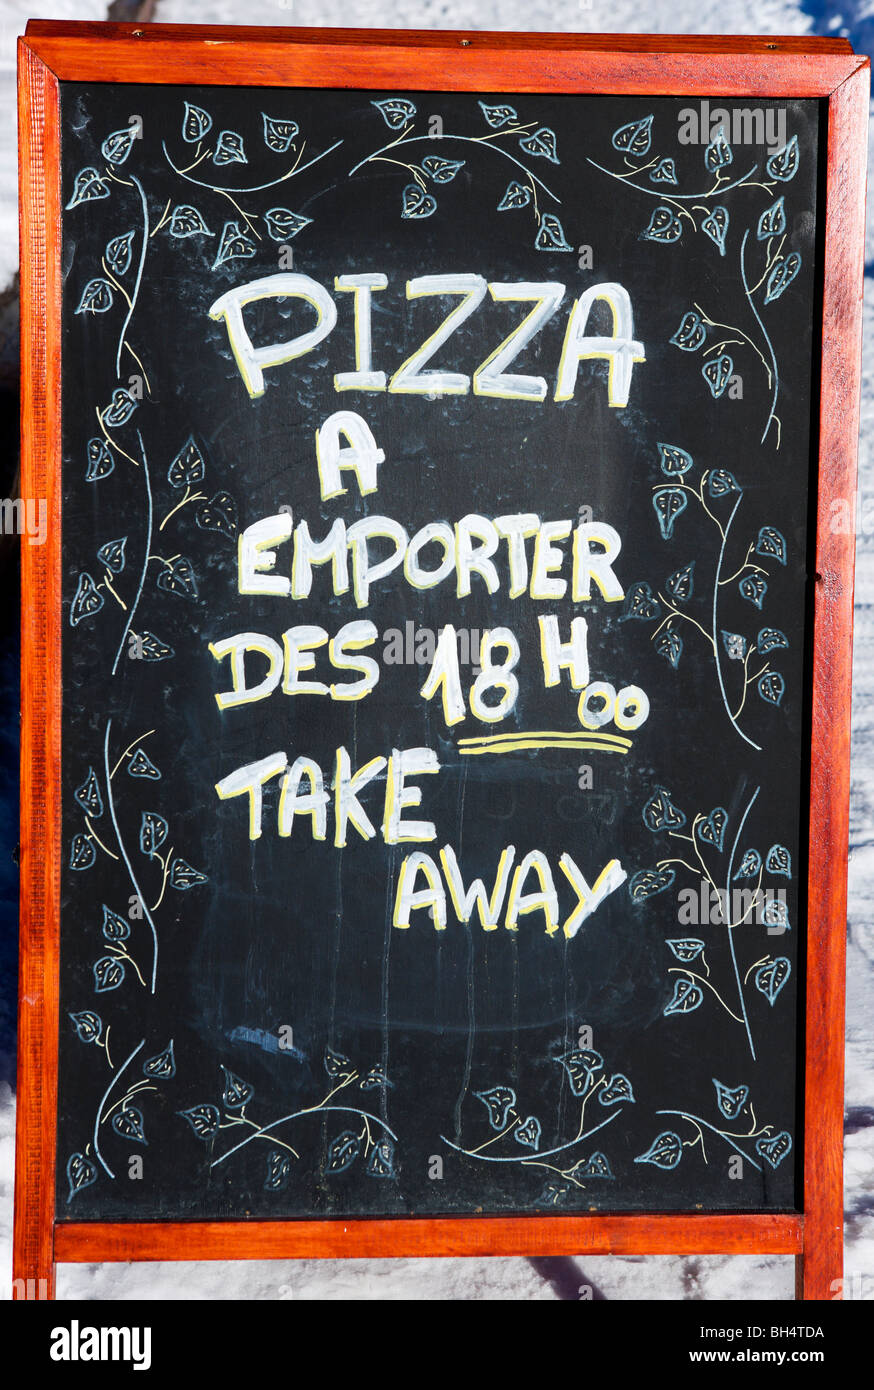 PIZZA
A
EMPORTER
DES 18H00
TAKE
AWAY
alamy
Image ID: BH4TDA
www.alamy.com